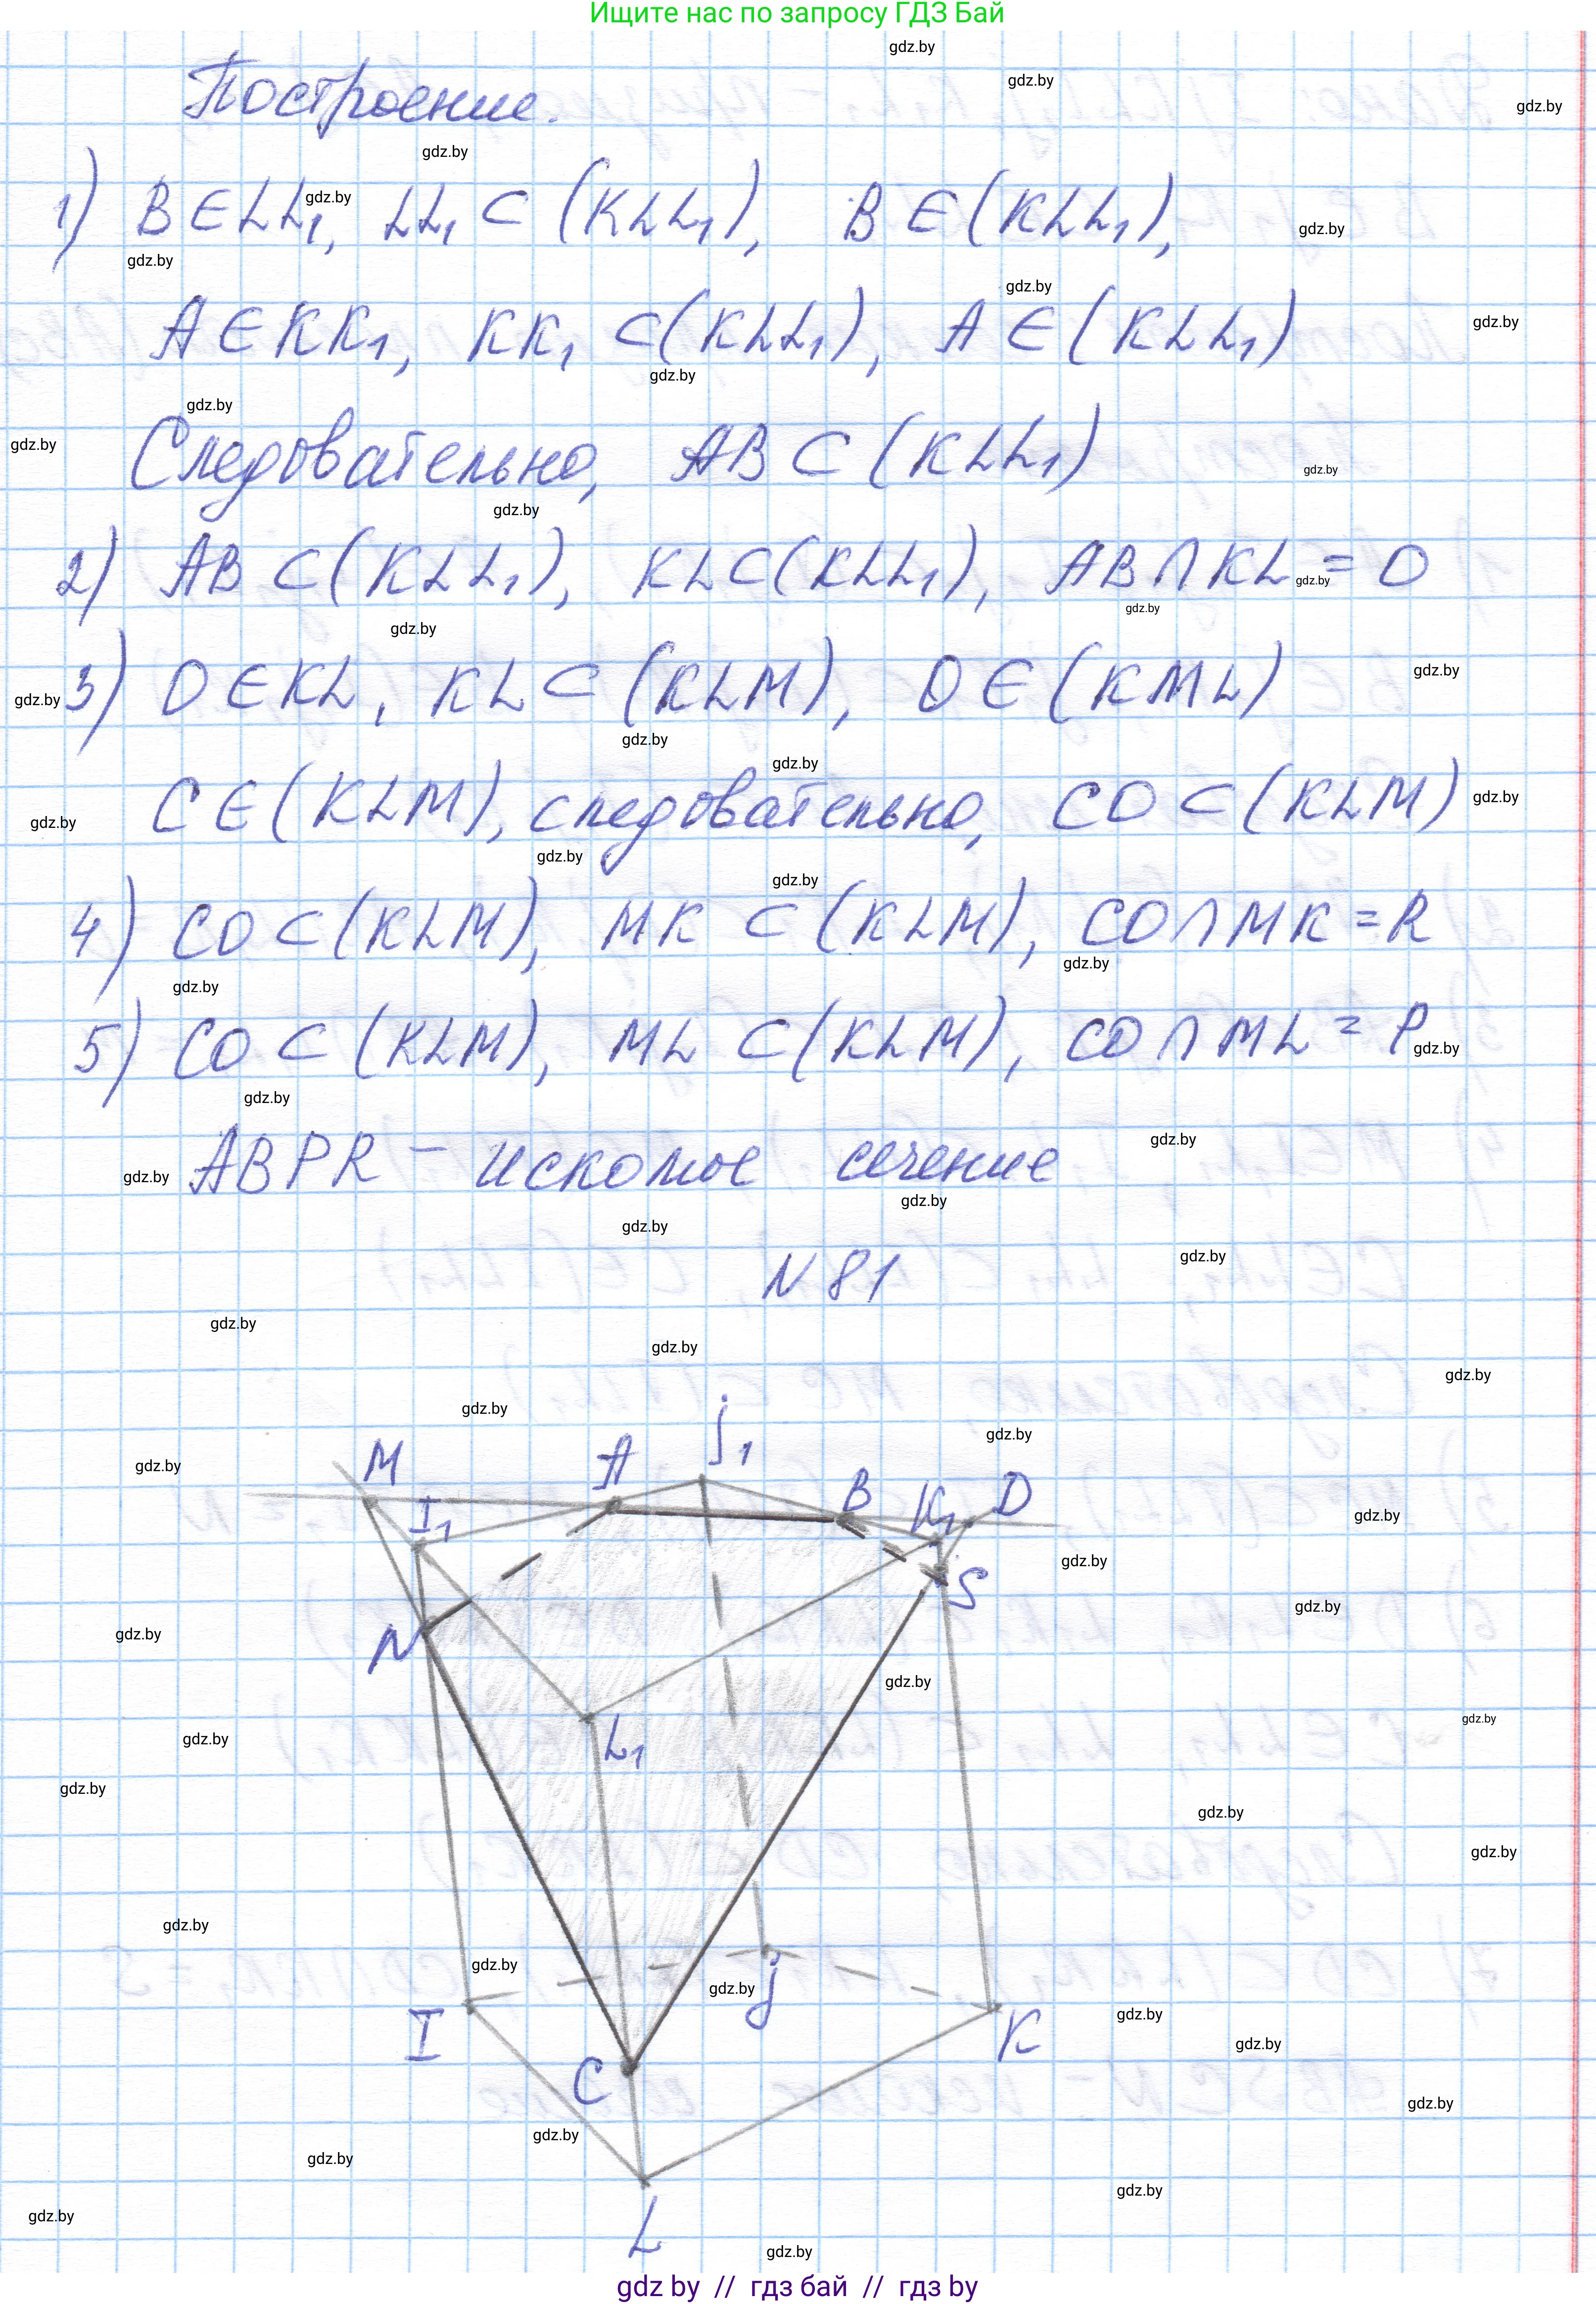 Ищите нас по запросу ГДЗ Бай
Построение.
1) B ∈ LL₁, LL₁ ⊂ (KLL₁), B ∈ (KLL₁),
A ∈ KK₁, KK₁ ⊂ (KLL₁), A ∈ (KLL₁)
Следовательно, AB ⊂ (KLL₁)
2) AB ⊂ (KLL₁), KL ⊂ (KLL₁), AB ∩ KL = O
3) O ∈ KL, KL ⊂ (KLM), O ∈ (KML)
C ∈ (KLM), следовательно, CO ⊂ (KLM)
4) CO ⊂ (KLM), MK ⊂ (KLM), CO ∩ MK = R
5) CO ⊂ (KLM), ML ⊂ (KLM), CO ∩ ML = P
ABPR – искомое сечение
N 81
M A j₁ B K₁ D
I₁
N S
L₁
I j K
C
L
gdz.by
gdz by // гдз бай // гдз by